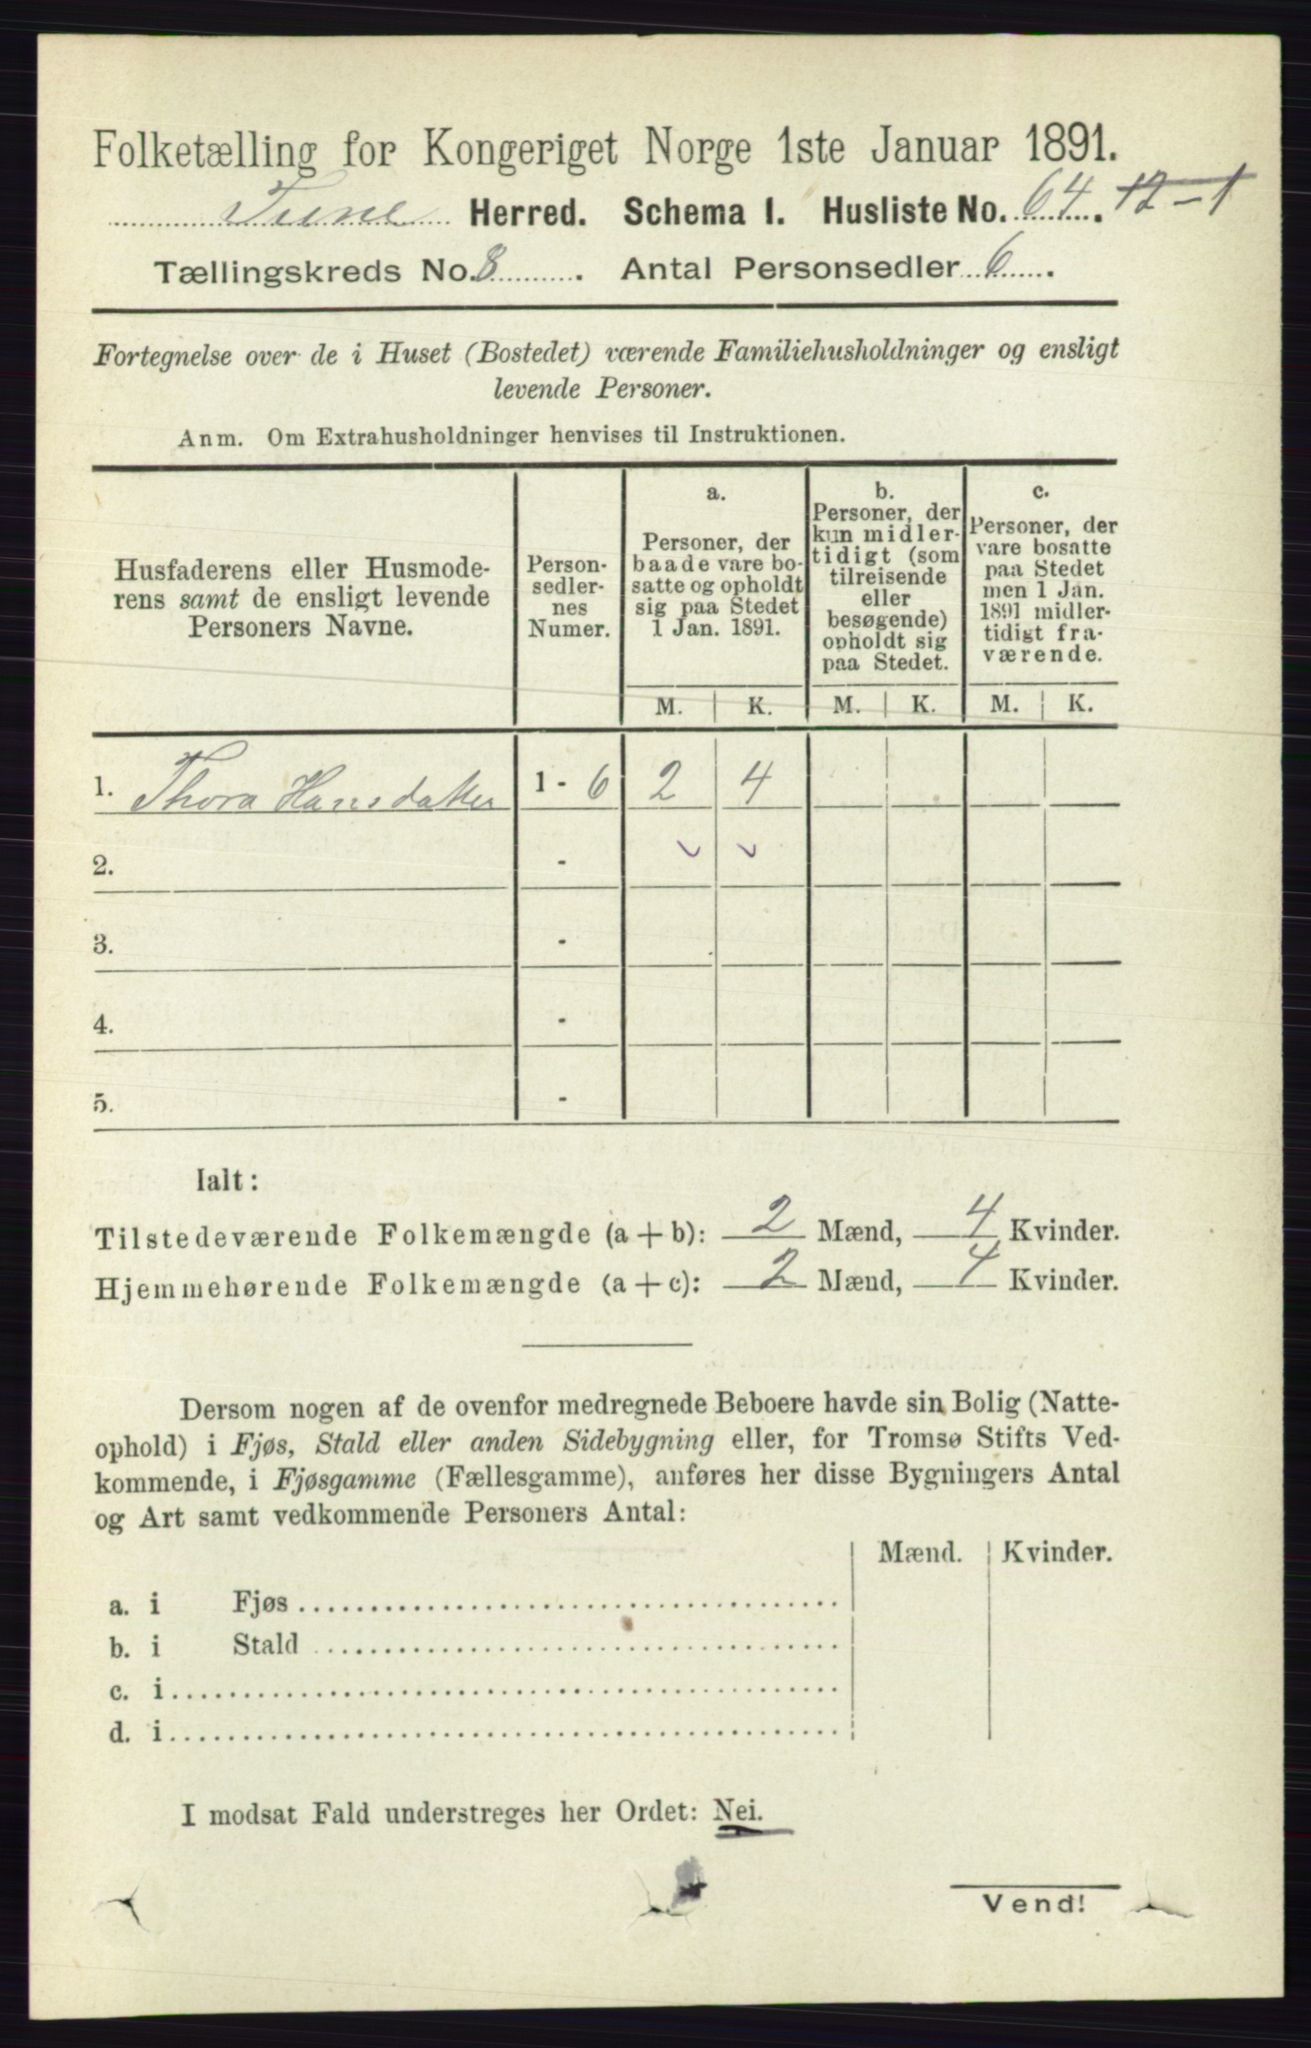 Folketælling for Kongeriget Norge 1ste Januar 1891.
Tune Herred. Schema I. Husliste No. 64. 12-1
Tællingskreds No. 8. Antal Personsedler 6.
Fortegnelse over de i Huset (Bostedet) værende Familiehusholdninger og ensligt
levende Personer.
Anm. Om Extrahusholdninger henvises til Instruktionen.
Husfaderens eller Husmode-
rens samt de ensligt levende
Personers Navne.
Person-
sedler-
nes
Numer.
a.
Personer, der
baade vare bo-
satte og opholdt
sig paa Stedet
1 Jan. 1891.
b.
Personer, der
kun midler-
tidigt (som
tilreisende
eller
besøgende)
opholdt sig
paa Stedet.
c.
Personer, der
vare bosatte
paa Stedet
men 1 Jan.
1891 midler-
tidigt fra-
værende.
M. K. M. K. M. K.
1. Thora Hansdatter 1 - 6 2 4
2. -
3. -
4. -
5. -
Ialt:
Tilstedeværende Folkemængde (a + b): 2 Mænd, 4 Kvinder.
Hjemmehørende Folkemængde (a + c): 2 Mænd, 4 Kvinder.
Dersom nogen af de ovenfor medregnede Beboere havde sin Bolig (Natte-
ophold) i Fjøs, Stald eller anden Sidebygning eller, for Tromsø Stifts Ved-
kommende, i Fjøsgamme (Fællesgamme), anføres her disse Bygningers Antal
og Art samt vedkommende Personers Antal:
Mænd. Kvinder.
a. i Fjøs
b. i Stald
c. i
d. i
I modsat Fald understreges her Ordet: Nei.
Vend!